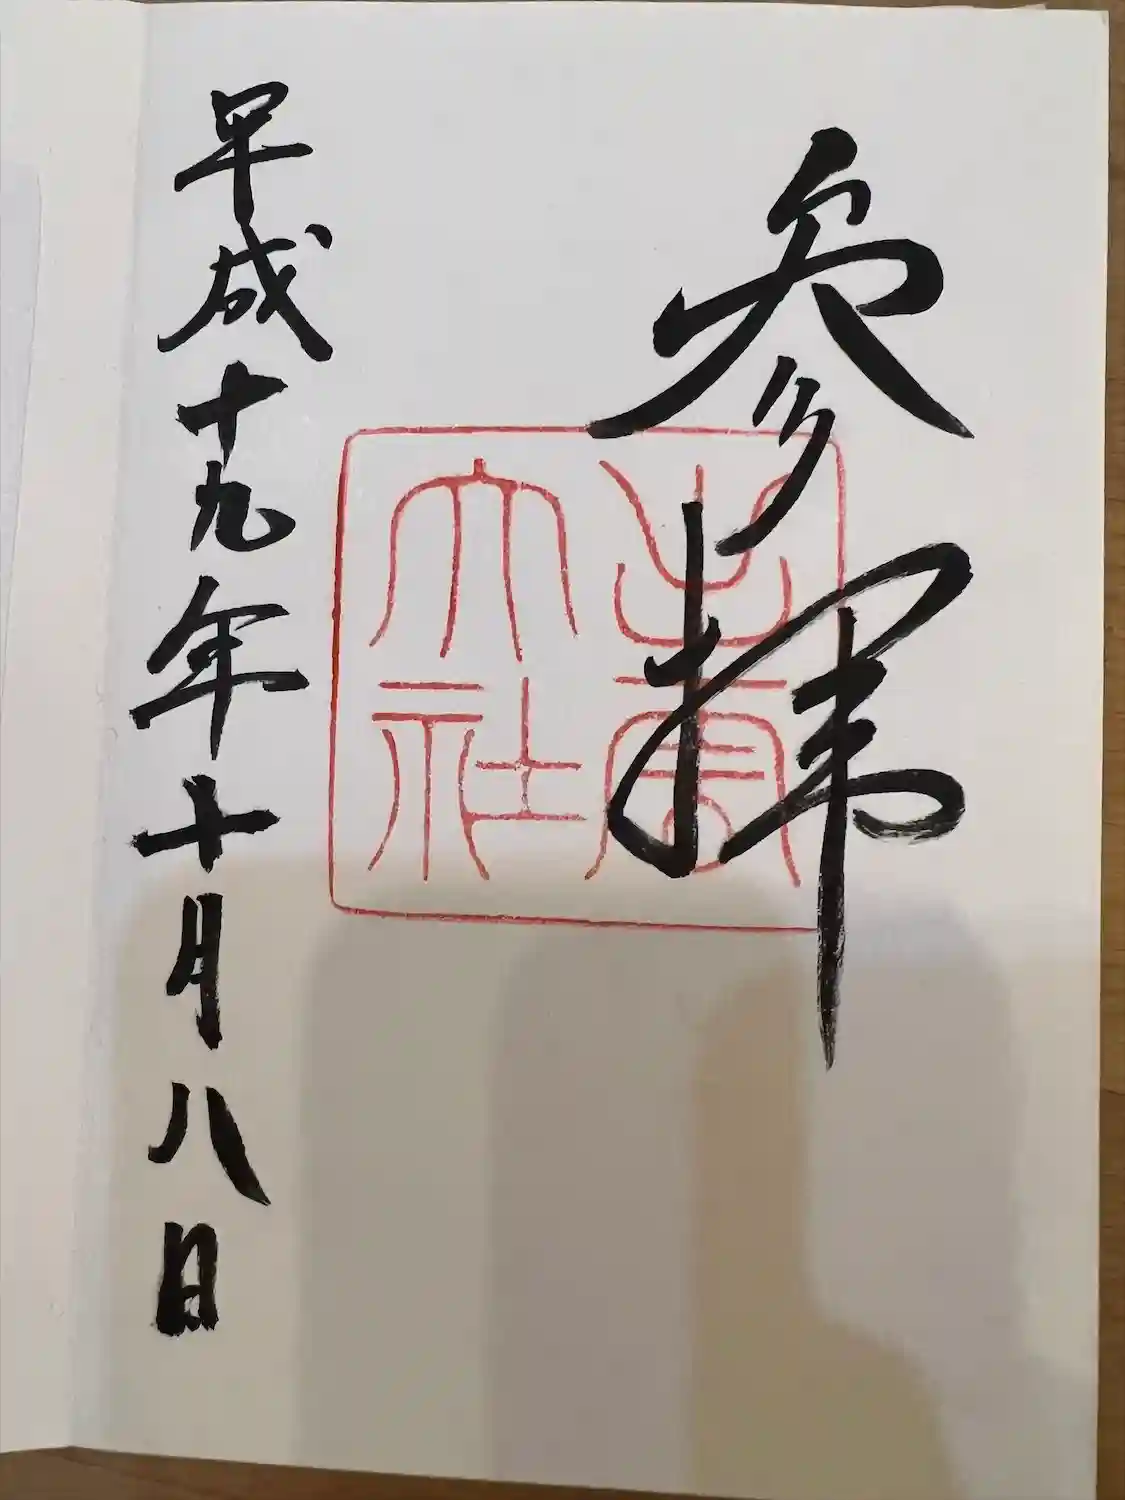 参拝
出雲
大社
平成十九年十月八日